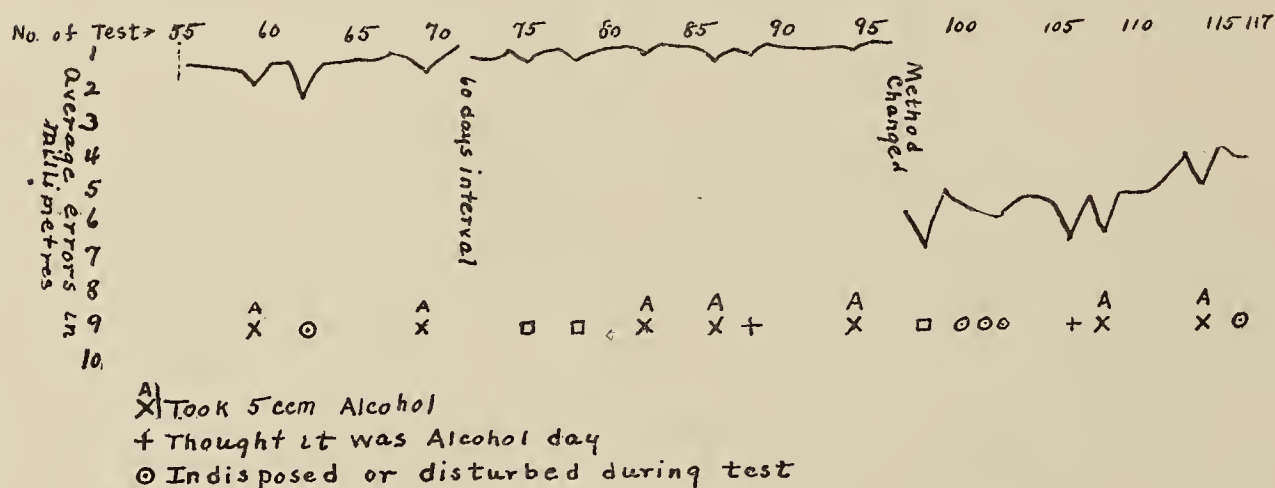 No. of Test→ 55 60 65 70 75 80 85 90 95 100 105 110 115 117
Average errors in
millimetres
1
2
3
4
5
6
7
8
9
10
60 days interval
Method
Changed
A A A A A A A
X X X X X X X
A
X Took 5 ccm Alcohol
+ Thought it was Alcohol day
⊙ Indisposed or disturbed during test